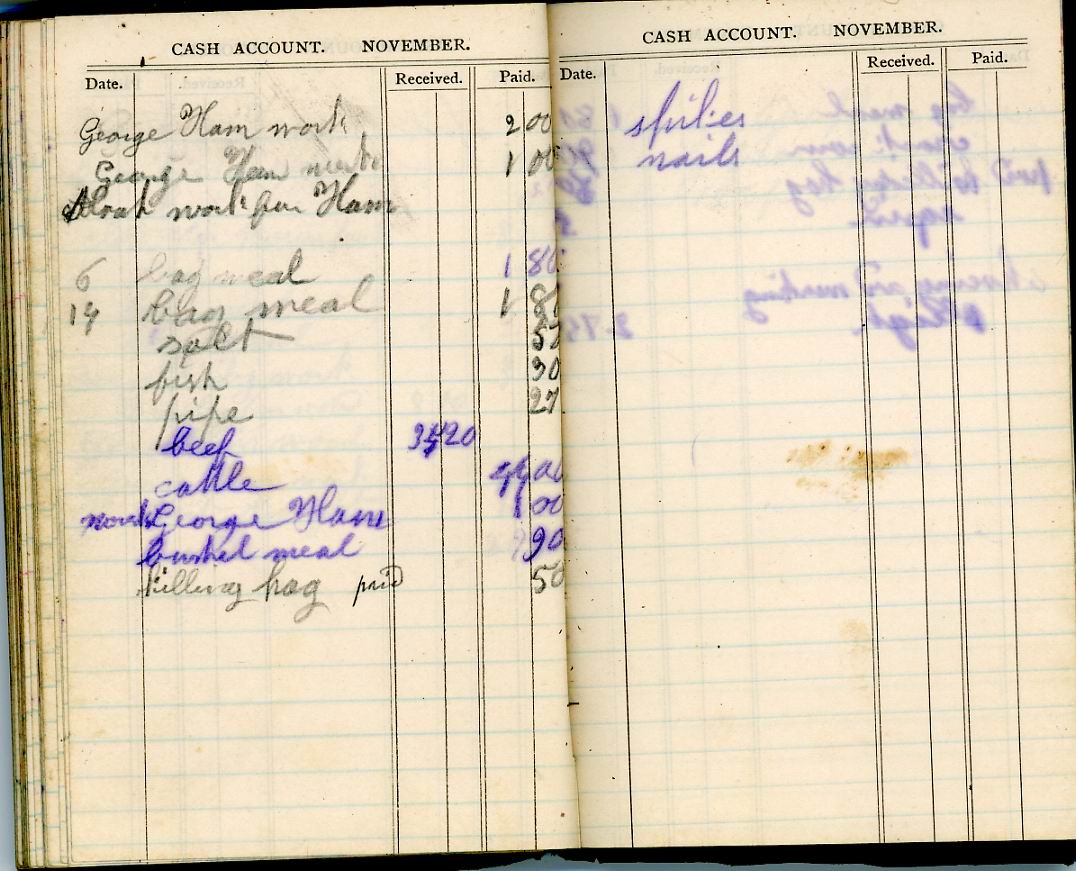 CASH ACCOUNT. NOVEMBER.
Date. Received. Paid.
George Ham work 2 00
George Ham work 1 00
work for Ham
6 bag meal 1 80
14 bag meal 1 8
salt 57
fish 90
pipe 27
beef 20
cattle 00
work George Ham 1 00
bushel meal 90
killing hog paid 50
CASH ACCOUNT. NOVEMBER.
Date. Received. Paid.
spikes
nails